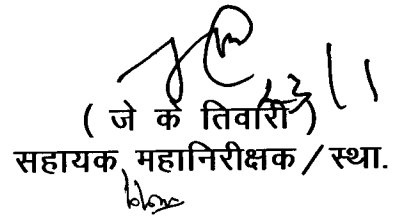 ( जे के तिवारी )
सहायक महानिरीक्षक / स्था.